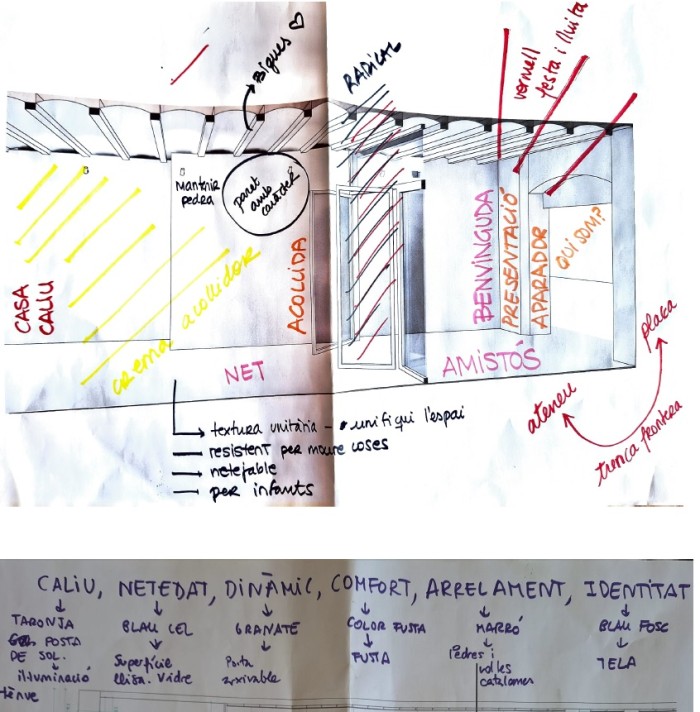 Bigues ♡
RADICAL
vermell
festa i lluita
Mantenir
pedra
paret
amb
caràcter
CASA
CALIU
crema acollidor
ACOLLIDA
BENVINGUDA
PRESENTACIÓ
APARADOR
QUI SOM?
NET
AMISTÓS
plaça
ateneu
trenca frontera
textura unitària - unifiqui l'espai
resistent per moure coses
netejable
per infants
CALIU, NETEDAT, DINÀMIC, COMFORT, ARRELAMENT, IDENTITAT
TARONJA BLAU CEL GRANATE COLOR FUSTA MARRÓ BLAU FOSC
POSTA
DE SOL.
il·luminació
tènue
Superfície
llisa. Vidre
Porta
FUSTA
Pedres i
voltes
catalanes
TELA